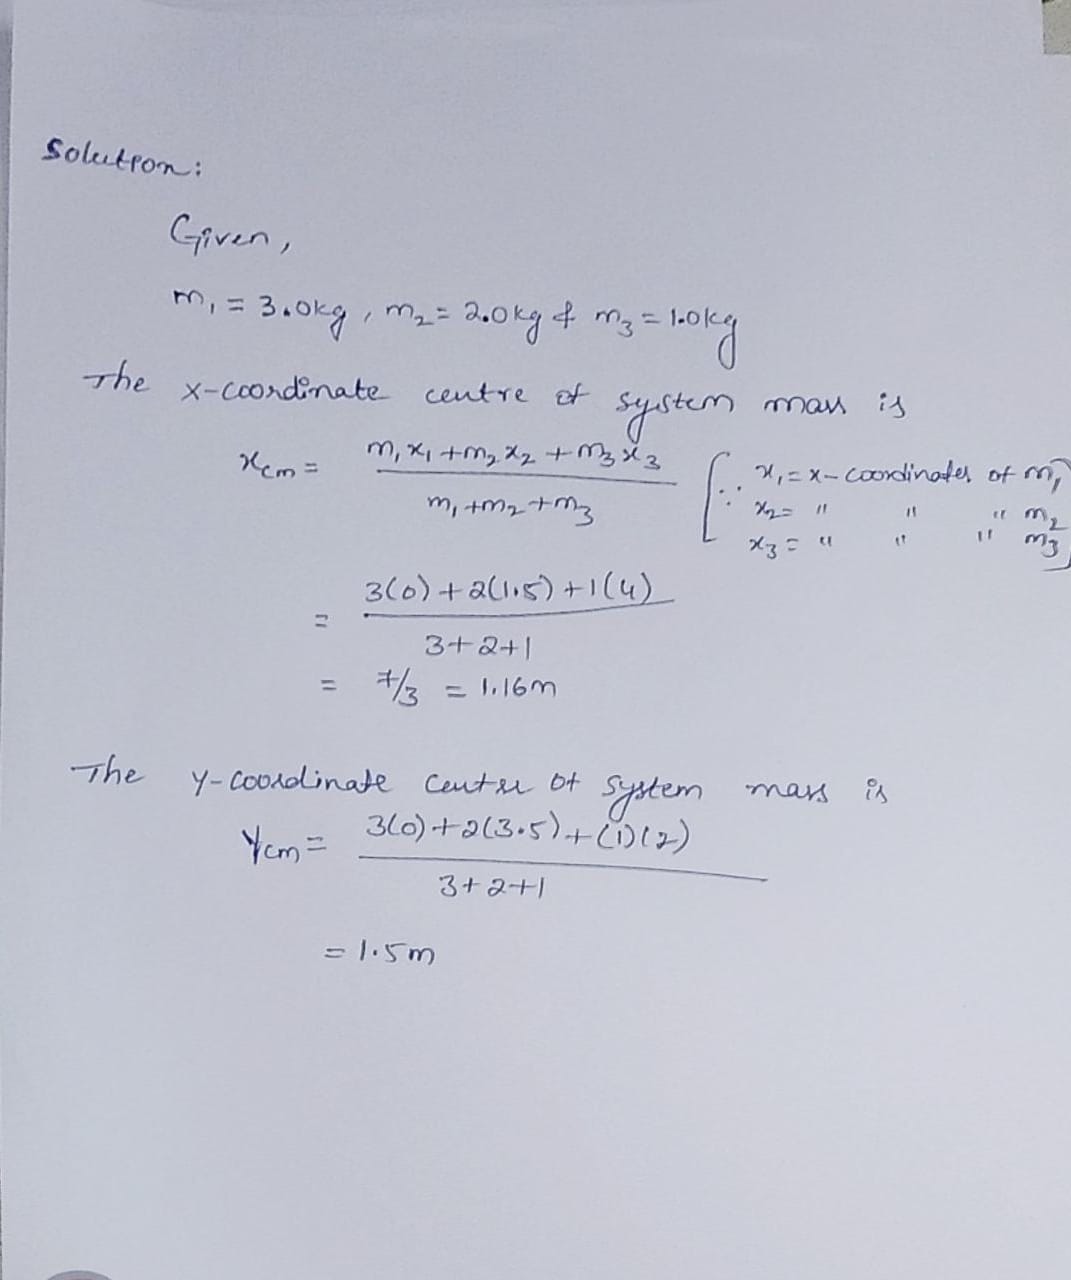 Solution:
Given,
m₁ = 3.0kg, m₂ = 2.0kg & m₃ = 1.0kg
The x-coordinate centre of system mass is
xcm = (m₁x₁ + m₂x₂ + m₃x₃) / (m₁ + m₂ + m₃) [∵ x₁ = x-coordinates of m₁
x₂ = " " " m₂
x₃ = " " " m₃]
= (3(0) + 2(1.5) + 1(4)) / (3+2+1)
= 7/3 = 1.16m
The y-coordinate centre of system mass is
Ycm = (3(0) + 2(3.5) + (1)(2)) / (3+2+1)
= 1.5m